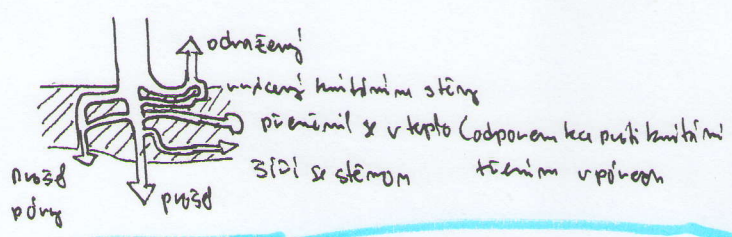 odražený
vrácený kmitáním stěny
přeměnil se v teplo (odporem kce proti kmitání
třením v pórech
šíří se stěnou
prošel
póry
prošel